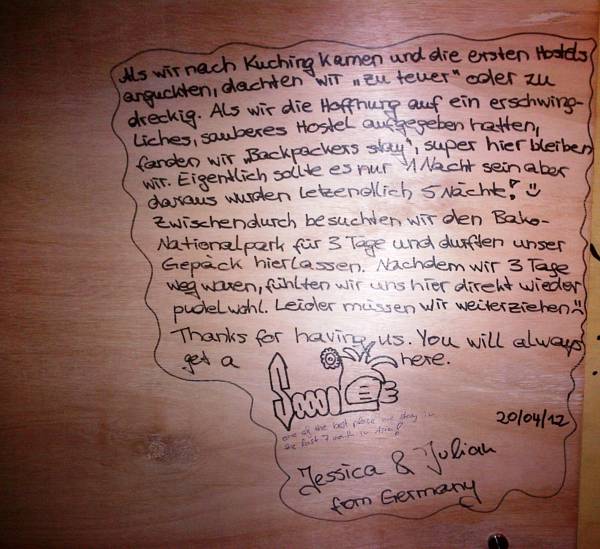 Als wir nach Kuching kamen und die ersten Hostels
anguckten, dachten wir „zu teuer" oder zu
dreckig. Als wir die Hoffnung auf ein erschwing-
liches, sauberes Hostel aufgegeben hatten,
fanden wir „Backpackers stay", super hier bleiben
wir. Eigentlich sollte es nur 1 Nacht sein aber
daraus wurden letzendlich 5 Nächte! ☺
Zwischendurch besuchten wir den Bako-
Nationalpark für 3 Tage und durften unser
Gepäck hierlassen. Nachdem wir 3 Tage
weg waren, fühlten wir uns hier direkt wieder
pudelwohl. Leider müssen wir weiterziehen ☹
Thanks for having us. You will always
get a Smile here.
one of the best place we stay in
the last 7 month in Asia!
20/04/12
Jessica & Julian
from Germany